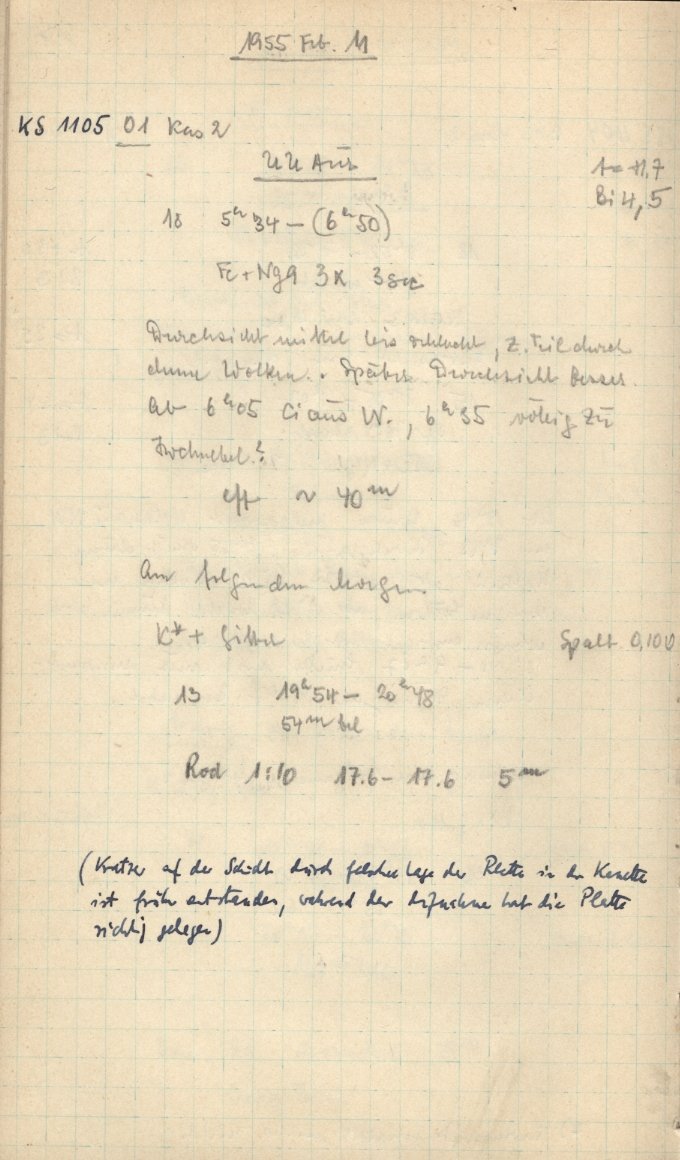 1955 Feb. 11
KS 1105 01 Kas 2
UU Aur
t = +1,7
Bi 4,5
18 5ʰ 34 – (6ʰ 50)
Fe + Ng 9 3x 3 sec
Durchsicht mittel bis schlecht, z. Teil durch
dünne Wolken. Später Durchsicht besser.
Ab 6ʰ05 Ci aus W., 6ʰ35 völlig zu
Hochnebel?
eff ~ 40ᵐ
Am folgenden Morgen
K* + Gitter
Spalt 0,100
13 19ʰ54 – 20ʰ48
54ᵐ bel
Rod 1:10 17.6 – 17.6 5ᵐ
(Kratzer auf der Schicht durch falsche Lage der Platte in der Kassette
ist früher entstanden, während der Aufnahme hat die Platte
richtig gelegen)